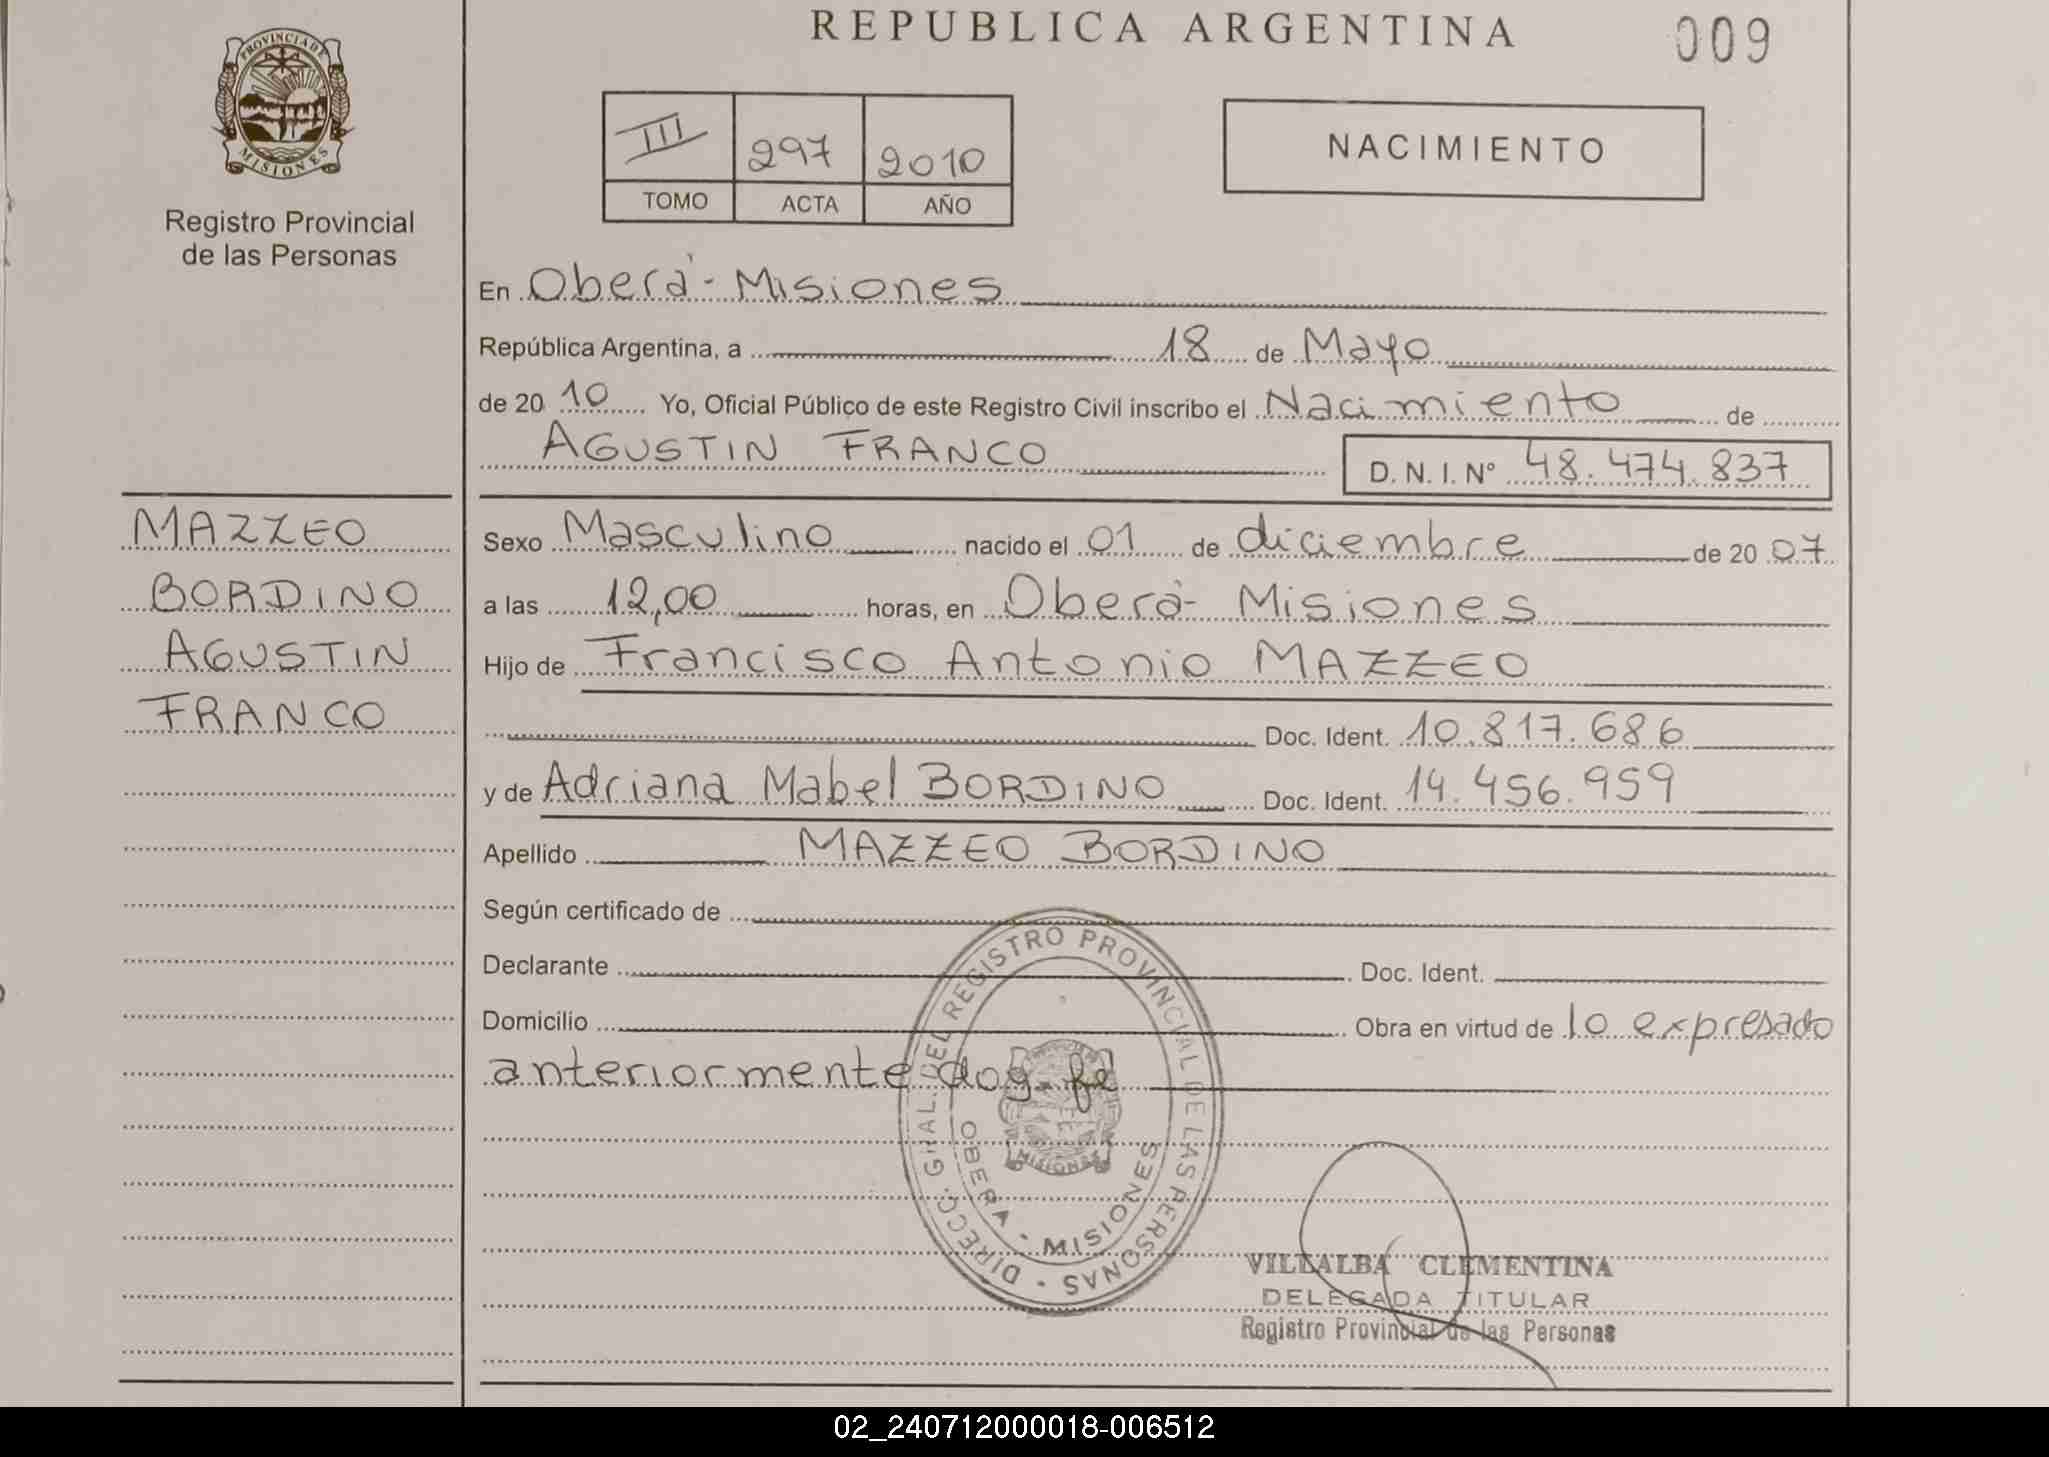 REPUBLICA ARGENTINA
009
PROVINCIA DE
MISIONES
Registro Provincial
de las Personas
III 297 2010
TOMO ACTA AÑO
NACIMIENTO
En Oberá - Misiones
República Argentina, a 18 de Mayo
de 20 10 Yo, Oficial Público de este Registro Civil inscribo el Nacimiento de
AGUSTIN FRANCO D. N. I. Nº 48.474.837
MAZZEO
BORDINO
AGUSTIN
FRANCO
Sexo Masculino nacido el 01 de diciembre de 20 07
a las 12,00 horas, en Oberá - Misiones
Hijo de Francisco Antonio MAZZEO
Doc. Ident. 10.817.686
y de Adriana Mabel BORDINO Doc. Ident. 14.456.959
Apellido MAZZEO BORDINO
Según certificado de
Declarante Doc. Ident.
Domicilio Obra en virtud de lo expresado
anteriormente doy fe
DIRECC. GRAL. DEL REGISTRO PROVINCIAL DE LAS PERSONAS
OBERA - MISIONES
MISIONES
VILLALBA CLEMENTINA
DELEGADA TITULAR
Registro Provincial de las Personas
02_240712000018-006512